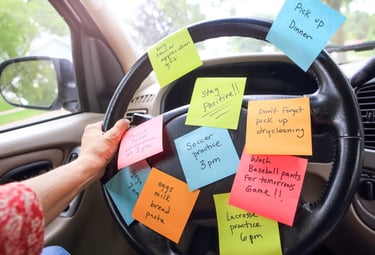 Pick up
Dinner
Buy teacher
appreciation
gift
Stay
Positive!!
Don't Forget
pick up
drycleaning
Soccer
practice
3pm
Wash
Baseball pants
for tomorrows
Game!!
eggs
milk
bread
pasta
Lacrosse
practice
6pm